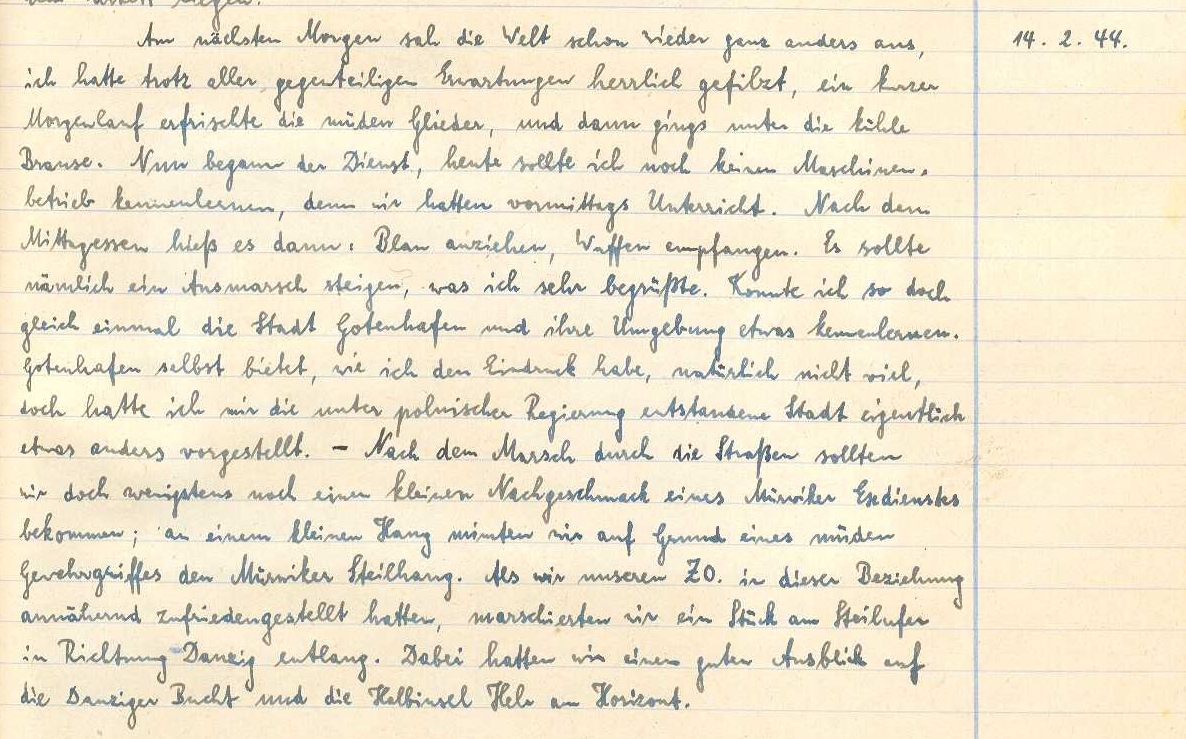 vom Arbeit liegen.
Am nächsten Morgen sah die Welt schon wieder ganz anders aus,
14. 2. 44.
ich hatte trotz aller gegenteiligen Erwartungen herrlich gefilzt, ein kurzer
Morgenlauf erfrischte die müden Glieder, und dann gings unter die kühle
Brause. Nun begann der Dienst, heute sollte ich noch keinen Maschinen-
betrieb kennenlernen, denn wir hatten vormittags Unterricht. Nach dem
Mittagessen hieß es dann: Blau anziehen, Waffen empfangen. Es sollte
nämlich ein Ausmarsch steigen, was ich sehr begrüßte. Konnte ich so doch
gleich einmal die Stadt Gotenhafen und ihre Umgebung etwas kennenlernen.
Gotenhafen selbst bietet, wie ich den Eindruck habe, natürlich nicht viel,
doch hatte ich mir die unter polnischer Regierung entstandene Stadt eigentlich
etwas anders vorgestellt. – Nach dem Marsch durch die Straßen sollten
wir doch wenigstens noch einen kleinen Nachgeschmack eines Mürwiker Exedienstes
bekommen; an einem kleinen Hang mimten wir auf Grund eines müden
Gewehrgriffes den Mürwiker Steilhang. Als wir unseren ZO. in dieser Beziehung
annähernd zufriedengestellt hatten, marschierten wir ein Stück am Steilufer
in Richtung Danzig entlang. Dabei hatten wir einen guten Ausblick auf
die Danziger Bucht und die Halbinsel Hela am Horizont.